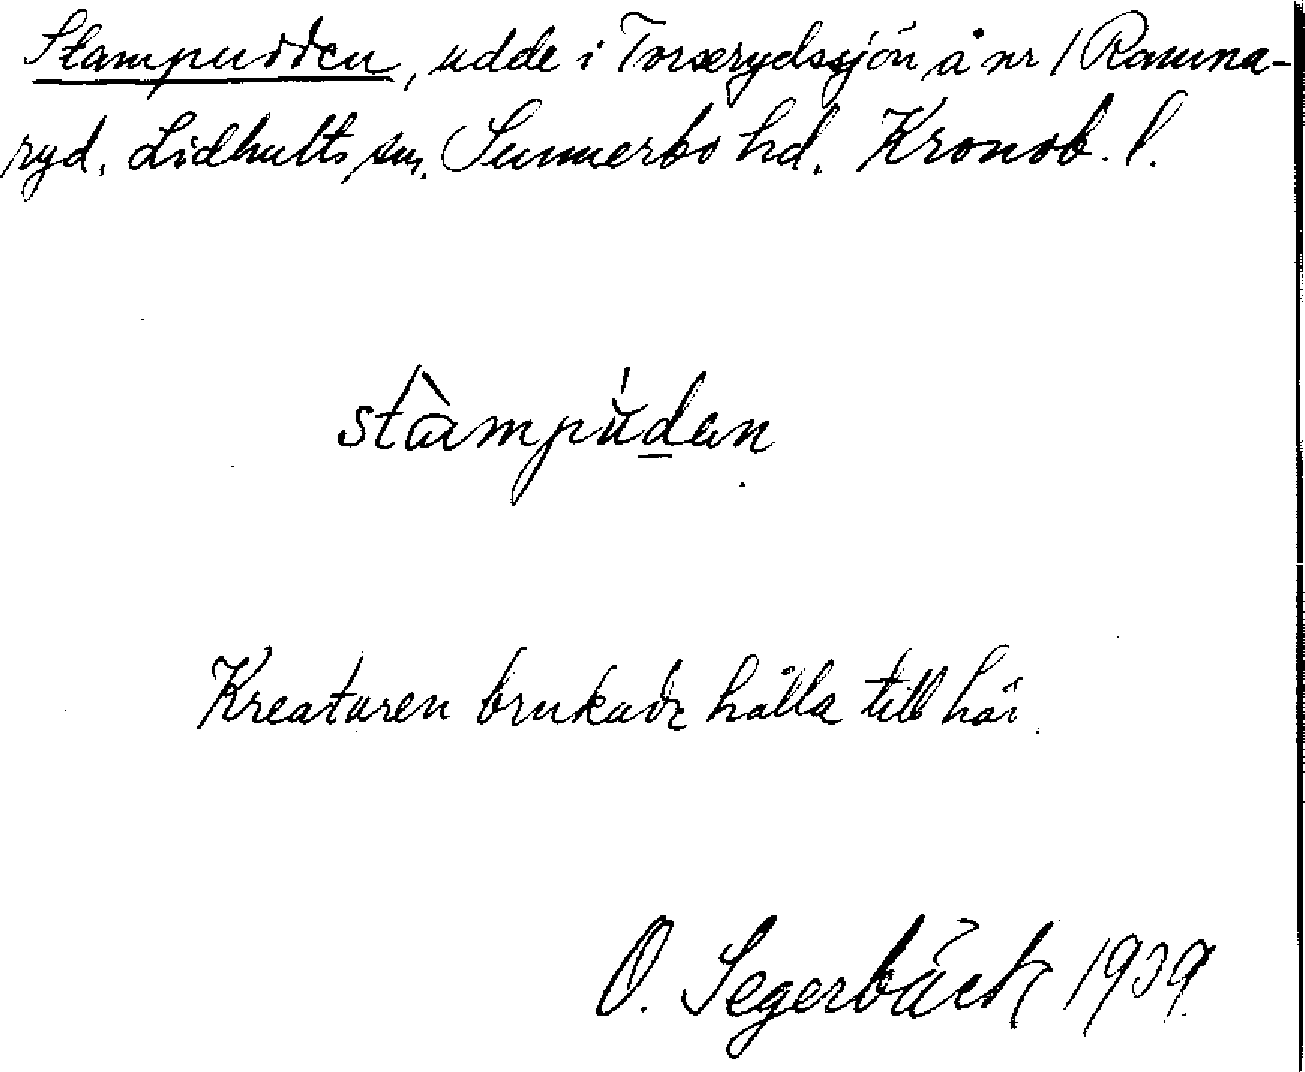 Stampudden, udde i Torserydssjön å nr 1 Ramna-
ryd, Lidhults sn, Sunnerbo hd. Kronob. l.
stàmpúdan
Kreaturen brukade hålla till här.
O. Segerbäck 1939